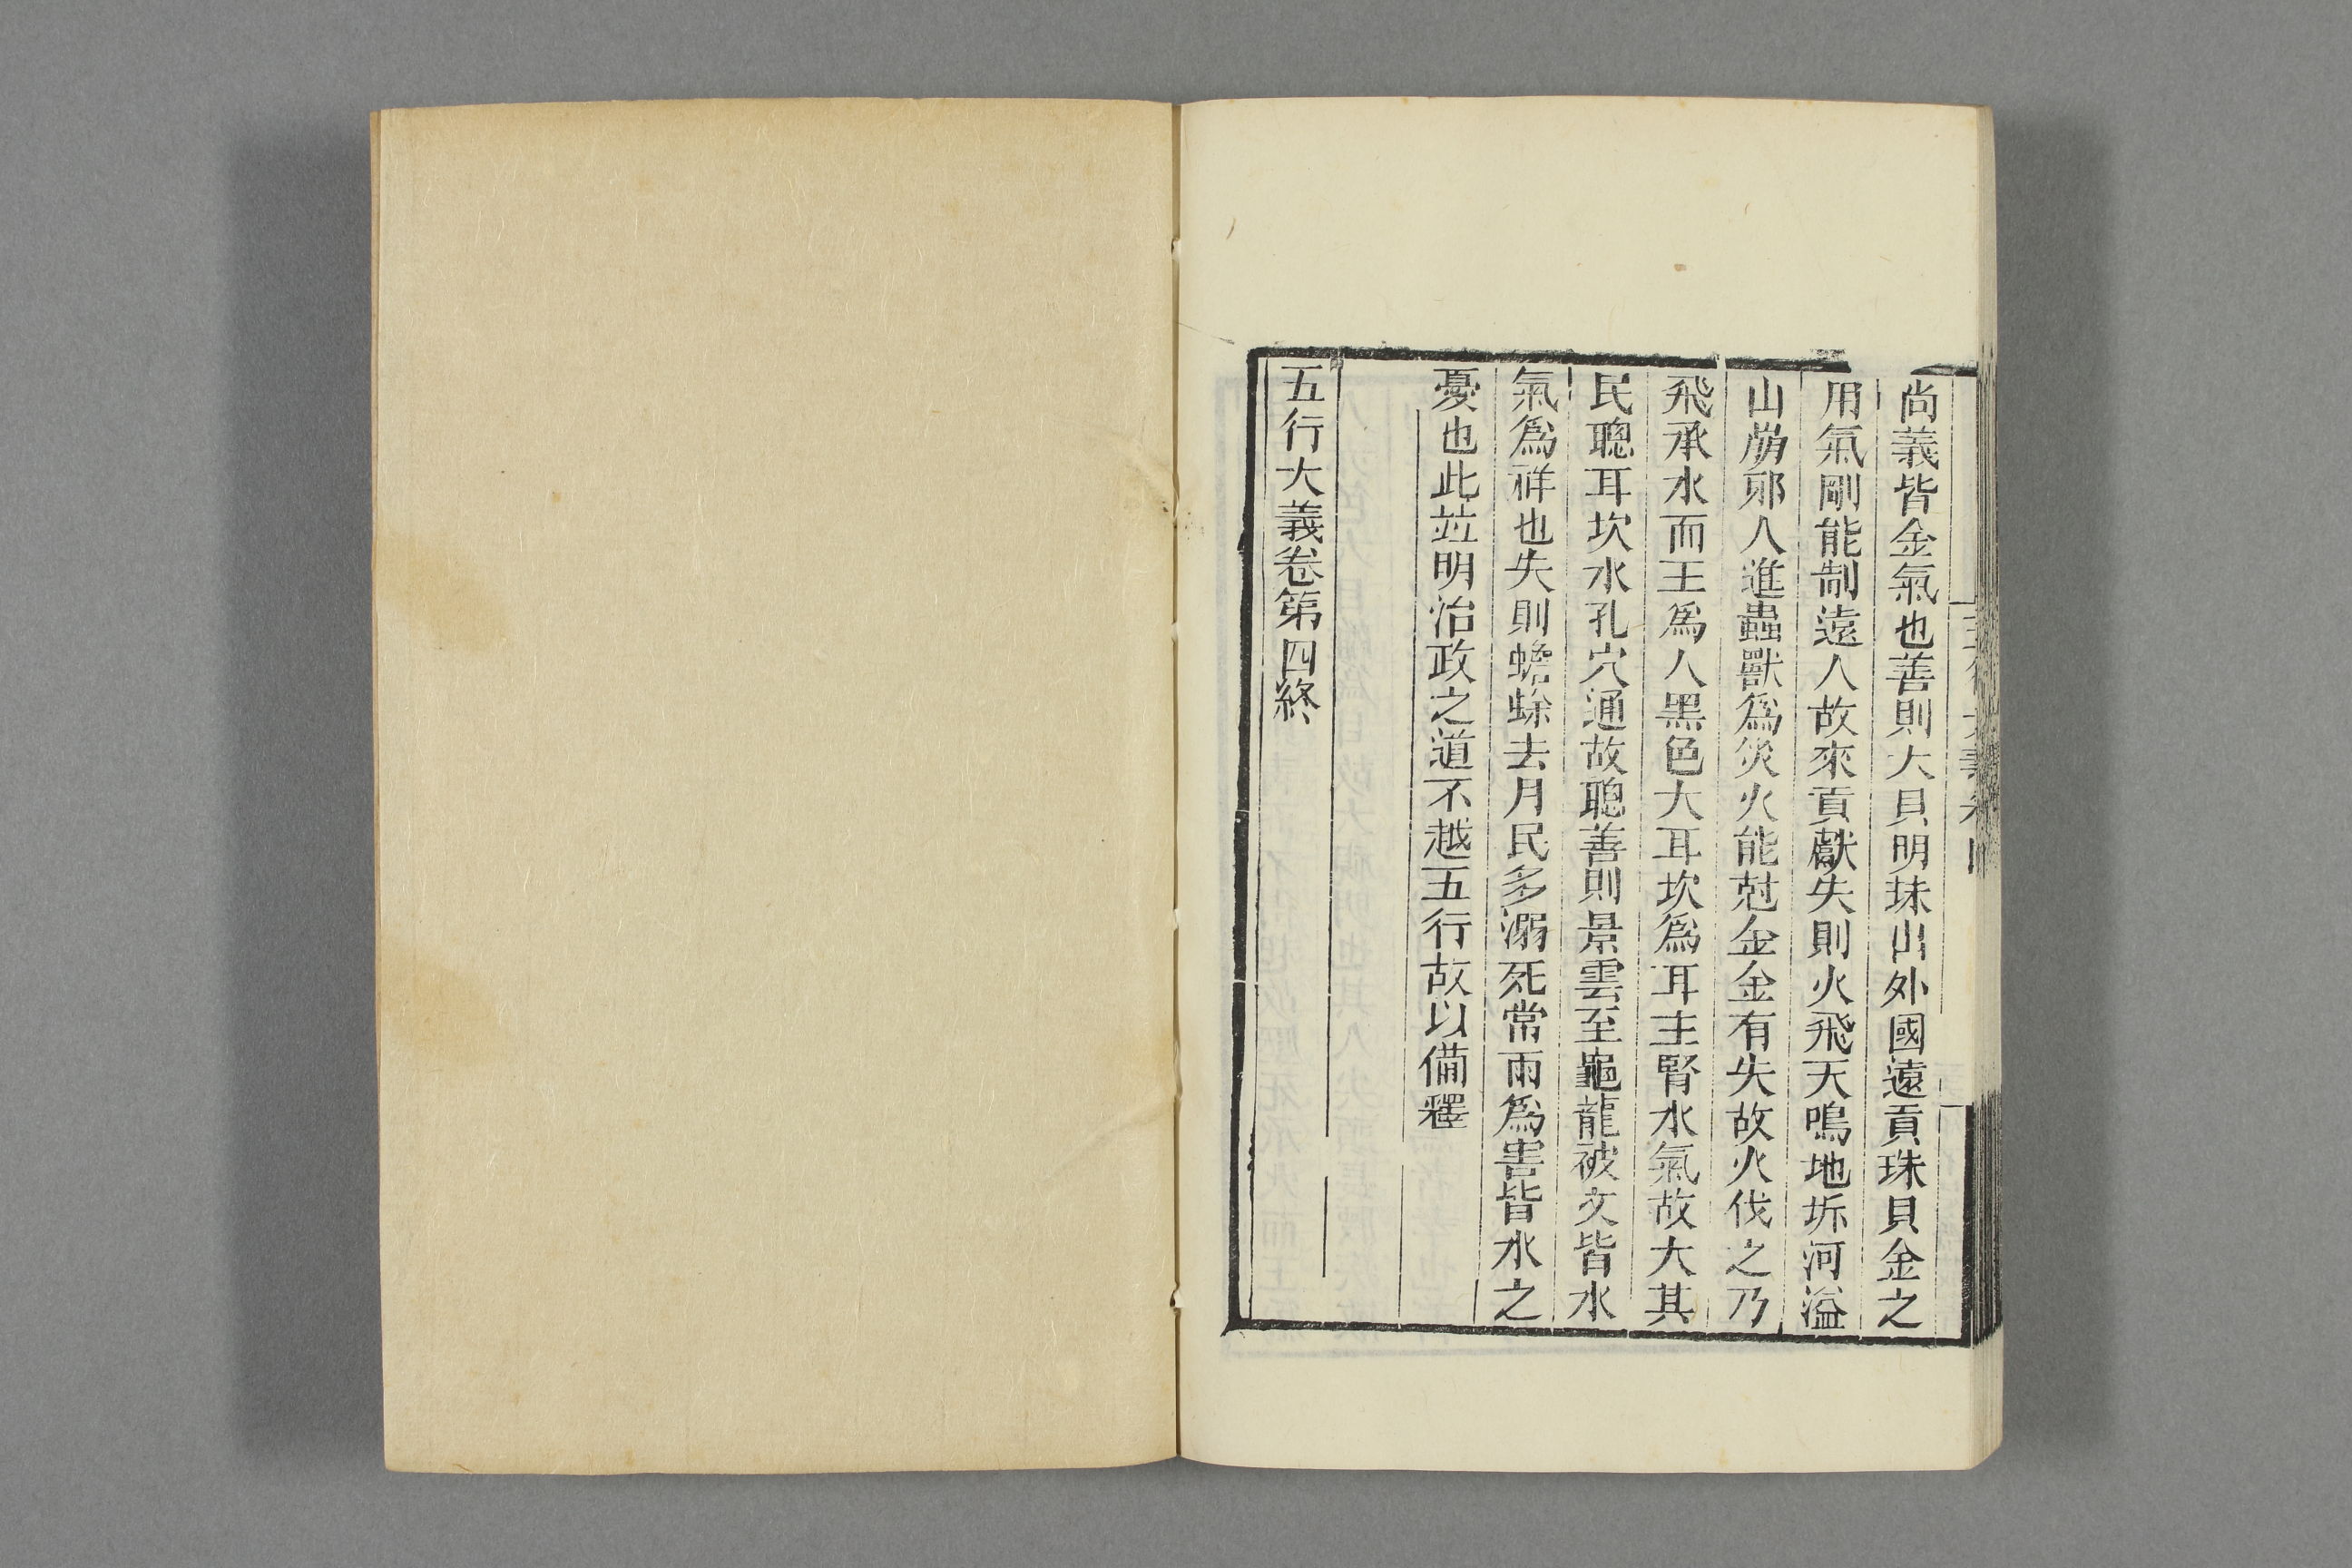 尚義皆金氣也善則大貝明珠出外國遠貢珠貝金之
用氣剛能制遠人故來貢獻失則火飛天鳴地坼河溢
山崩邪人進蟲獸爲災火能尅金金有失故火伐之乃
飛承水而王爲人黑色大耳坎爲耳主腎水氣故大其
民聰耳坎水孔穴通故聰善則景雲至龜龍被文皆水
氣爲祥也失則蟾蜍去月民多溺死常雨爲害皆水之
憂也此竝明治政之道不越五行故以備釋
五行大義卷第四終